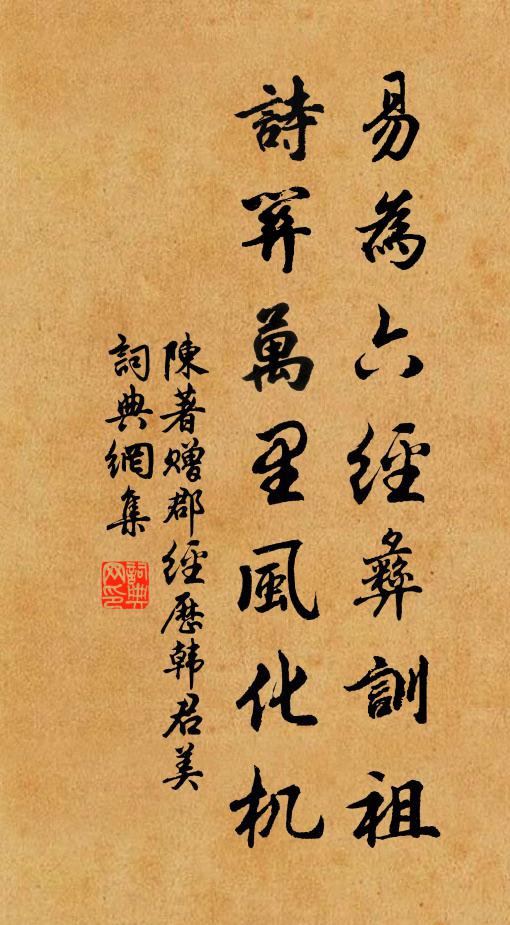 易為六經彝訓祖
詩開萬里風化机
陳著赠郡經歷韩君美
詞典網集
詞典网印